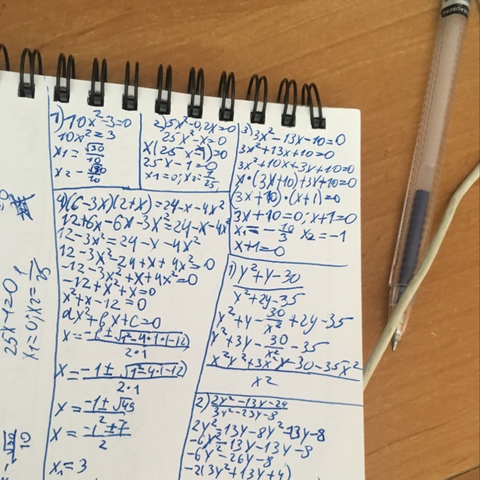 1) 10x²-3=0
10x²=3
x₁=√30/10
x₂-√30/10
2) 5x²-0,2x=0
25x²-x=0
x(25x-1)=0
25x-1=0
x₁=0; x₂=1/25
3) 3x²-13x-10=0
3x²+13x+10=0
3x²+10x+3x+10=0
x·(3x+10)+3x+10=0
(3x+10)·(x+1)=0
3x+10=0; x+1=0
x₁=-10/3 x₂=-1
x+1=0
(6-3x)(2+x)=24-x-4x²
12+6x-6x-3x²=24-x-4x²
12-3x²=24-x-4x²
12-3x²-24+x+4x²=0
-12-3x²+x+4x²=0
-12+x²+x=0
x²+x-12=0
ax²+bx+c=0
x=-1±√1²-4·1·(-12)/2·1
x=-1±√1²-4·1·(-12)/2·1
x=-1±√49/2
x=-1±7/2
x₁=3
1) y²+y-30/y²+2y-35
y²+y-30/x²+2y-35
y²+3y-30/x²-35
x²y²+3x²y-30-35x²/x²
2) 2y²-13y-24/3y²-23y-8
2y²-13y-8y²-13y-8
-6y²-13y-13y-8
-6y²-26y-8
-2(3y²+13y+4)
25x-1=0
x₁=0; x₂=1/25